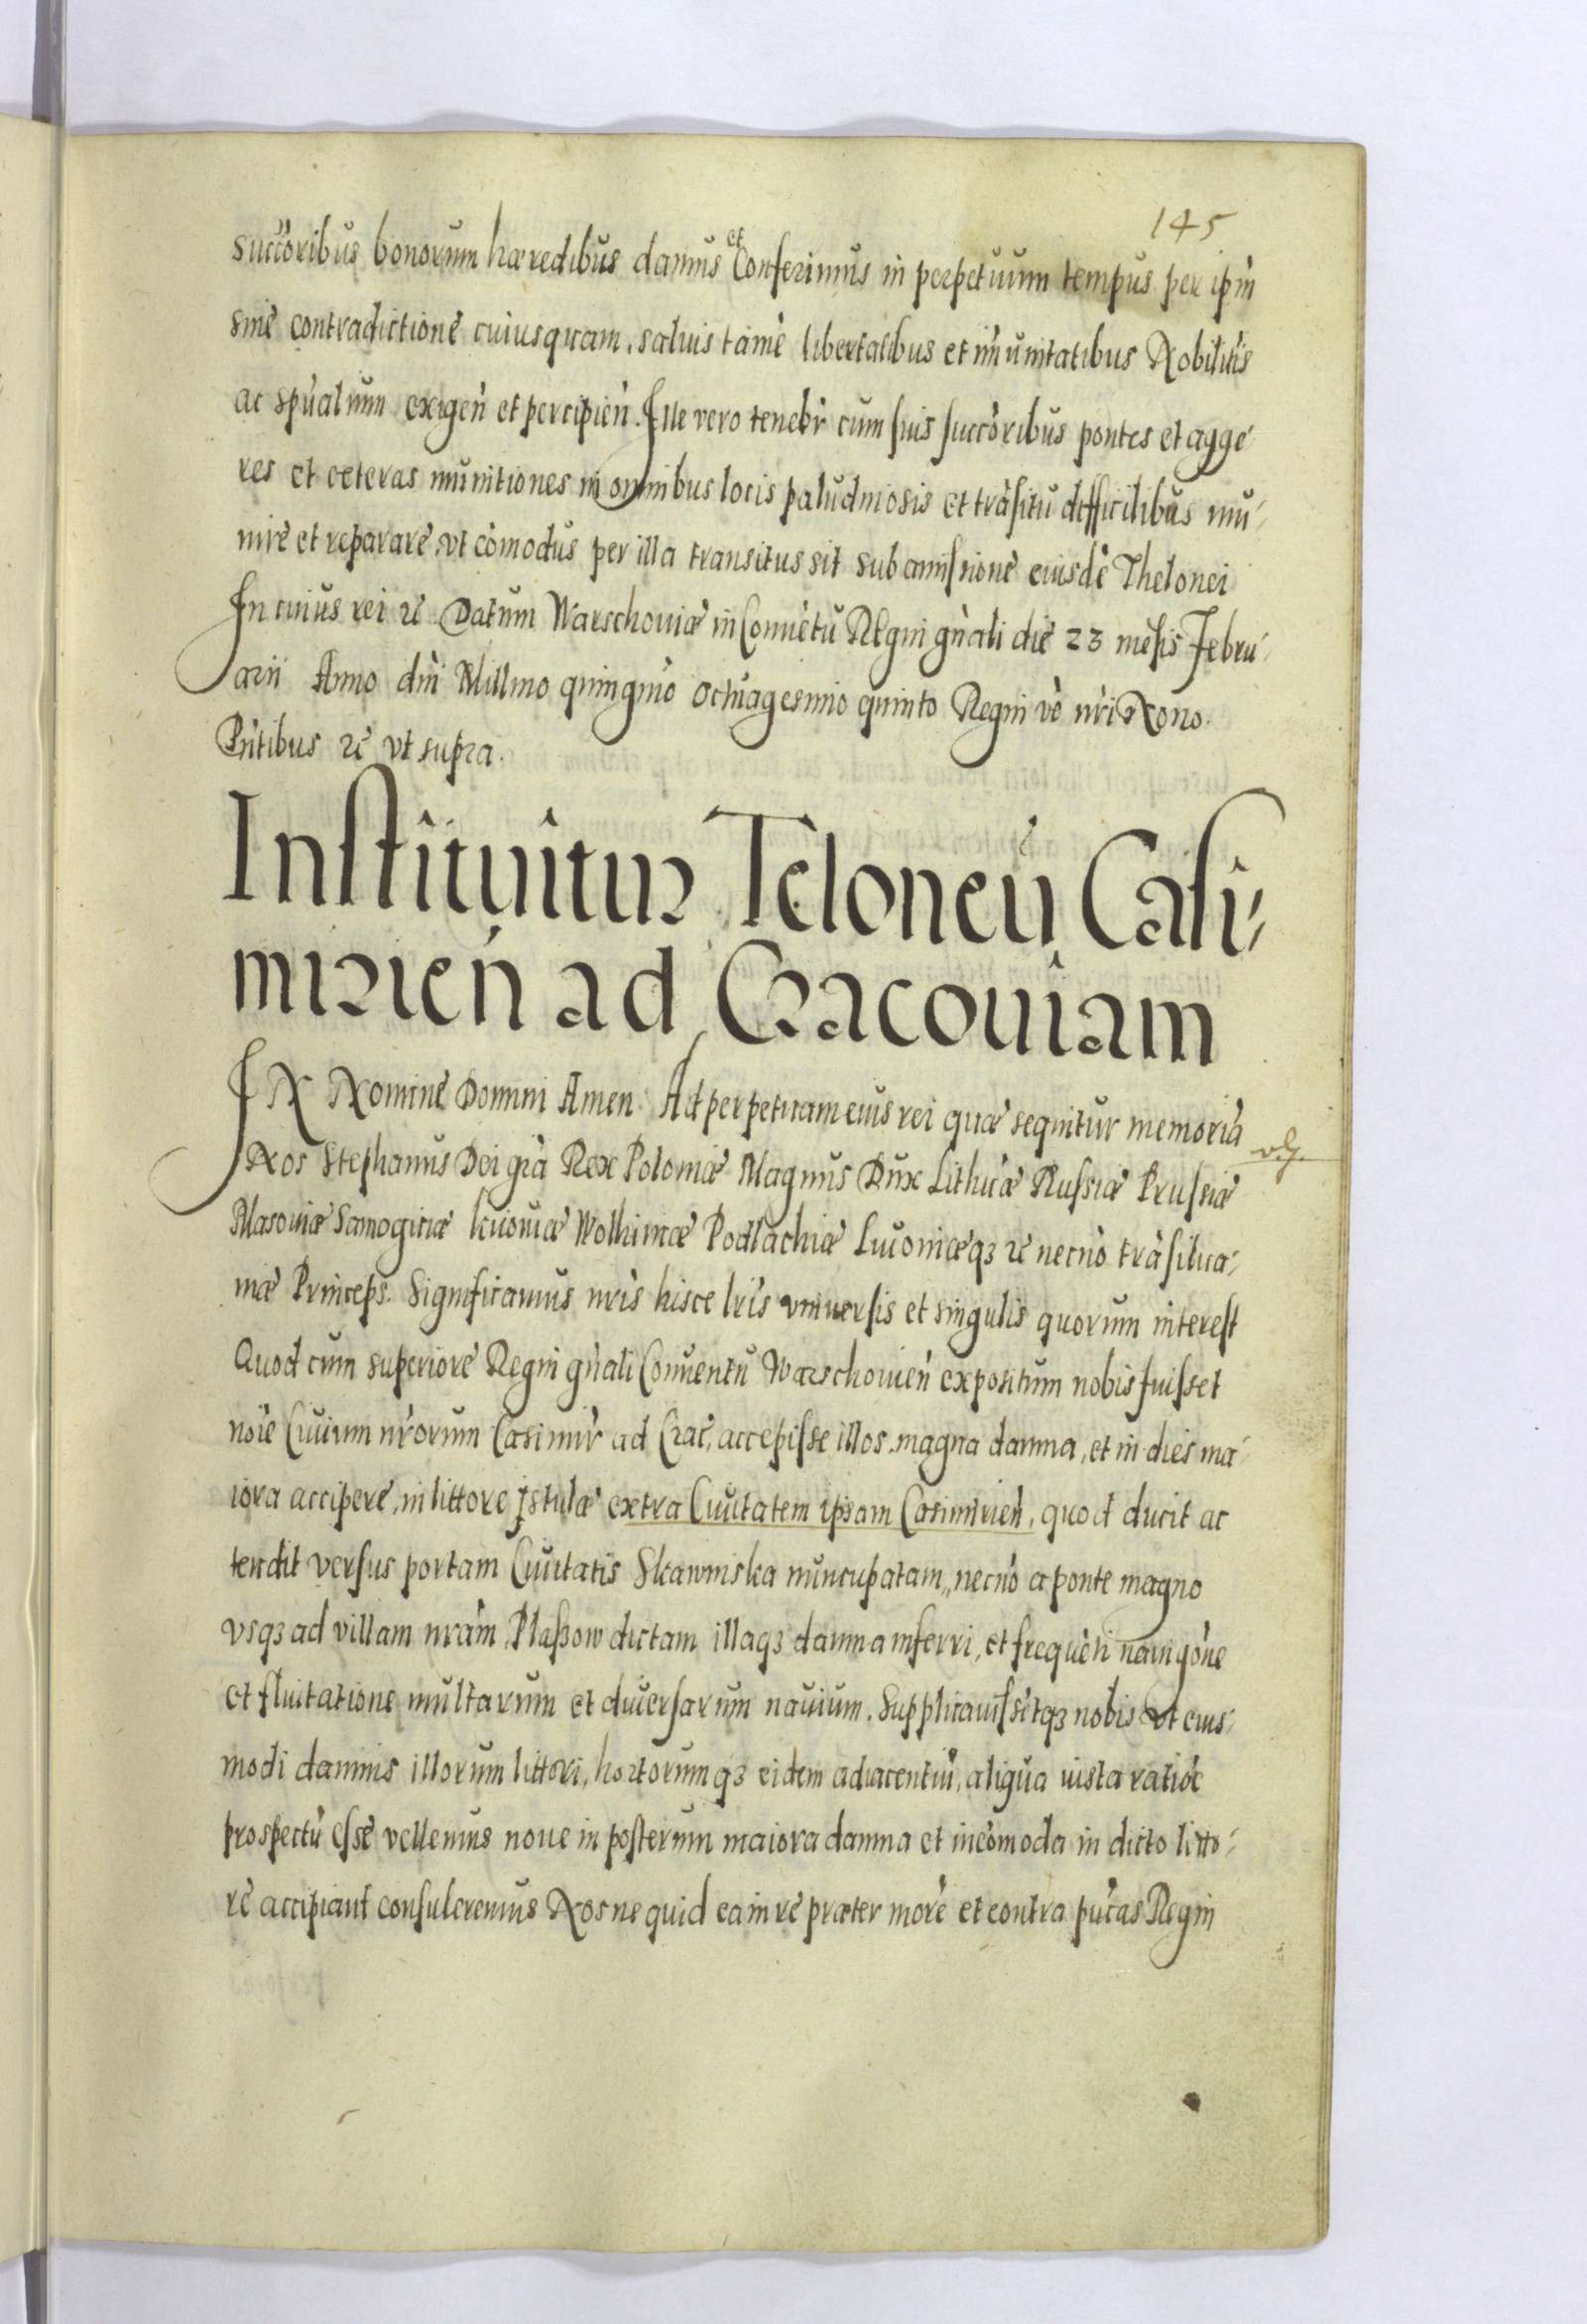 145
succōribus bonorum hæredibus damus et Conferimus in perpetuum tempus per ipm̄
sine contradictione cuiusquam, saluis tamē libertatibus et im̄unitatibus Nobilitīs
ac spūalium exigeń et percipień. Ille vero tenebr̄ cum suis succōribus pontes et agge-
res et ceteras munitiones in omnibus locis paludinosis et trāsitu difficilibus mu-
nire et reparare, vt cōmodus per illa transitus sit sub amissione eiusdē Thelonei
In cuius rei etc̄ Datum Warschouiæ in Conuētu Regni gn̄ali die 23 mēsis Febru-
arii Anno dn̄i Millmo quingmō octuagesimo quinto Regni vō nr̄i Nono.
Pn̄tibus etc̄ vt supra.
Instituitur Teloneū Casi-
mirień ad Cracouiam
IN Nomine Domini Amen. Ad perpetuam eius rei quæ sequitur memoriā
Nos Stephanus Dei grā Rex Poloniæ Magnus Dux Lithūæ Russiæ Prussiæ
v.g.
Masouiæ Samogitiæ kiiouiæ Wolhiniæ Podlachiæ Liuoniæqȝ etc̄ necnō trāsilua-
niæ Princeps. Significamus nr̄is hisce lr̄is vniuersis et singulis quorum interest
Quod cum superiore Regni gn̄ali Conuentu Warschouień expositum nobis fuisset
noīe Ciuium nr̄orum Casimir̄ ad Crac̄, accepisse illos magna damna, et in dies ma-
iora accipere, in littore Istulæ extra Ciuitatem ipsam Casimirień, quod ducit ac
tendit versus portam Ciuitatis Skawinska nuncupatam, necnō a ponte magno
vsqȝ ad villam nrām Plaßow dictam illaqȝ damna inferri, et frequēti nauigōne
et fluitatione multarum et diuersarum nauium. Supplicauissetqȝ nobis vt eius-
modi damnis illorum littori, hortorumqȝ eidem adiacentiū, aliqua iusta ratiōe
prospectū esse vellemus neue in posterum maiora damna et incōmoda in dicto litto-
re accipiant consuleremus Nos ne quid ea in re præter morē et contra pūcas Regni